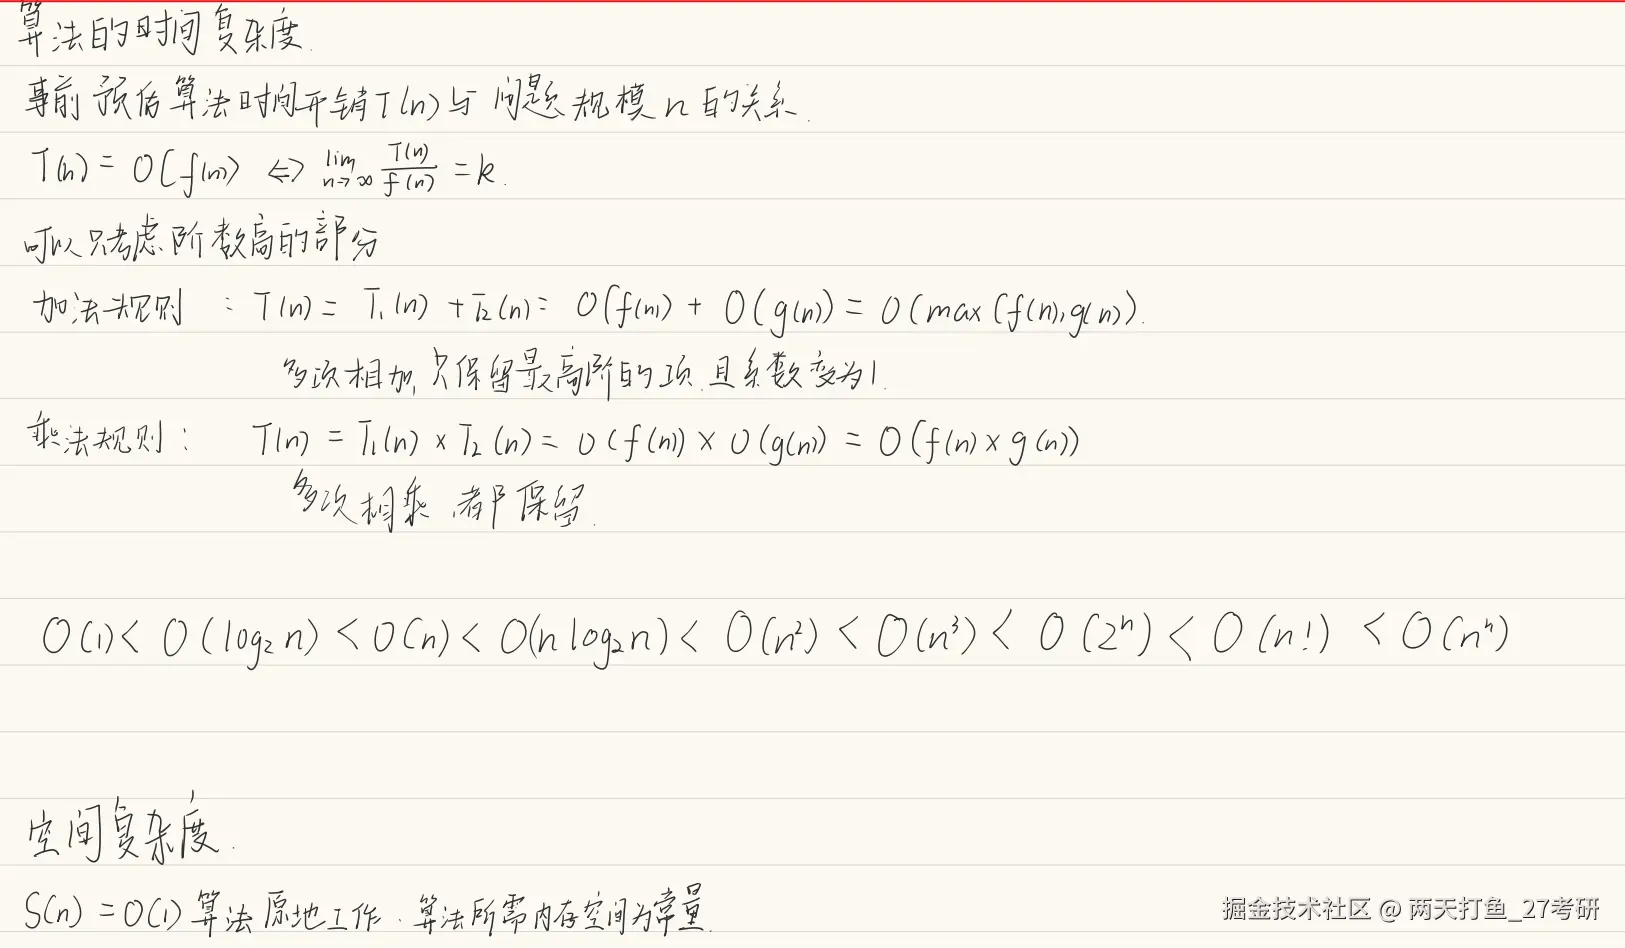 算法的时间复杂度.
事前预估算法时间开销T(n)与问题规模n的关系.
T(n) = O(f(n)) ⇔ lim n→∞ T(n)/f(n) = k.
可以只考虑阶数高的部分
加法规则 : T(n) = T₁(n) + T₂(n) = O(f(n)) + O(g(n)) = O(max(f(n),g(n)).
多项相加,只保留最高阶的项.且系数变为1.
乘法规则: T(n) = T₁(n) × T₂(n) = O(f(n)) × O(g(n)) = O(f(n) × g(n))
多次相乘,都保留.
O(1) < O(log₂n) < O(n) < O(nlog₂n) < O(n²) < O(n³) < O(2ⁿ) < O(n!) < O(nⁿ)
空间复杂度.
S(n) = O(1) 算法原地工作.算法所需内存空间为常量.
掘金技术社区 @ 两天打鱼_27考研